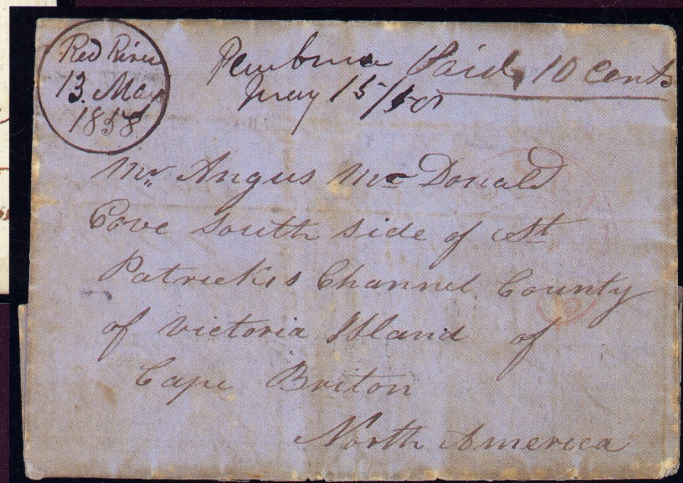 Red River
13 May
1858
Pembina Paid 10 Cents
May 15/58
Mr. Angus McDonald
Cove South Side of St
Patricks Channel County
of Victoria Island of
Cape Briton
North America